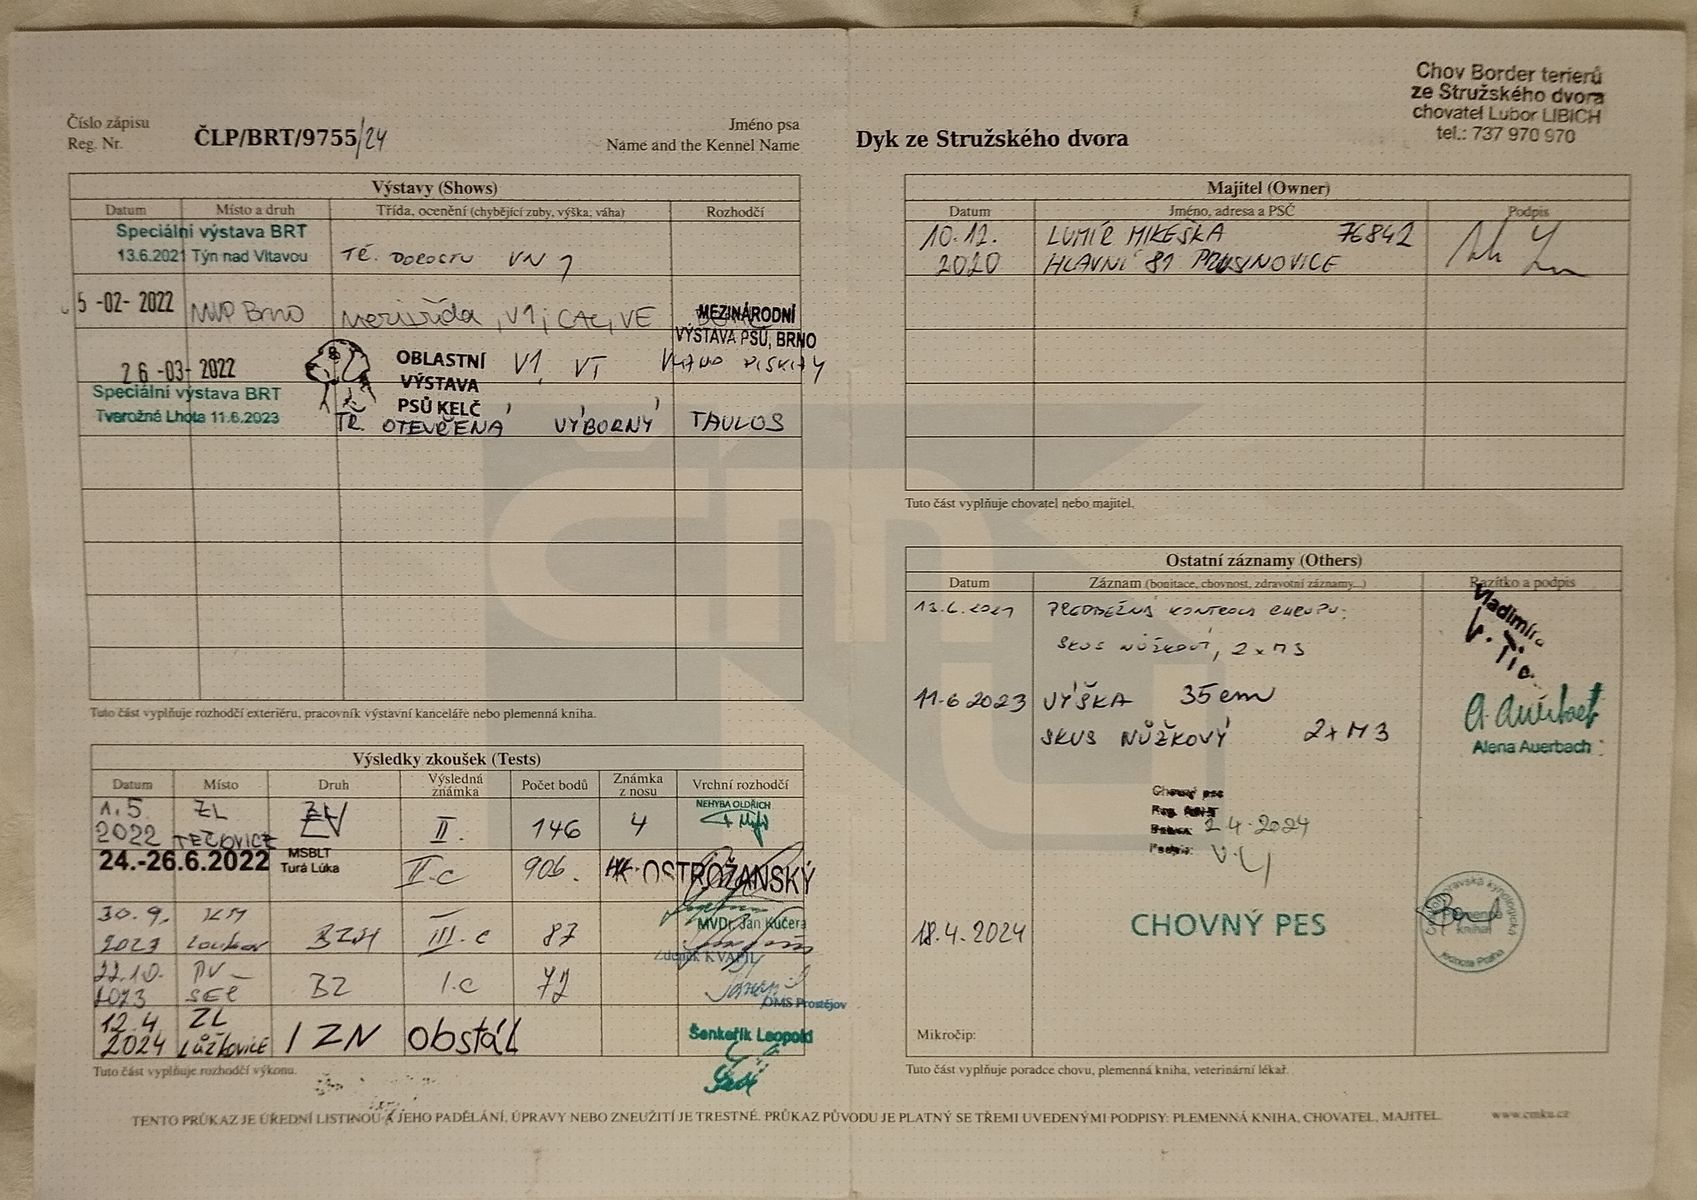 Chov Border terierů
ze Stružského dvora
chovatel Lubor LIBICH
tel.: 737 970 970
Číslo zápisu
Reg. Nr.
ČLP/BRT/9755/24
Jméno psa
Name and the Kennel Name
Dyk ze Stružského dvora
Výstavy (Shows)
Datum Místo a druh Třída, ocenění (chybějící zuby, výška, váha) Rozhodčí
Speciální výstava BRT
13.6.2021 Týn nad Vltavou TŘ. DOROSTU VN 1
5 -02- 2022 MVP Brno Mezitřída, V1, CAC, VE
MEZINÁRODNÍ
VÝSTAVA PSŮ, BRNO
26 -03- 2022 OBLASTNÍ
VÝSTAVA
PSŮ KELČ
V1, VT
Speciální výstava BRT
Tvarožná Lhota 11.6.2023 TŘ. OTEVŘENÁ VÝBORNÝ TAULOS
Tuto část vyplňuje rozhodčí exteriéru, pracovník výstavní kanceláře nebo plemenná kniha.
Výsledky zkoušek (Tests)
Datum Místo Druh Výsledná známka Počet bodů Známka z nosu Vrchní rozhodčí
1.5 2022 ZL TEČOVICE ZV II. 146 4 NEHYBA OLDŘICH
24.-26.6.2022 MSBLT Turá Lúka II.c 906. OSTROŽANSKÝ
30.9. 2023 KM BZH III.c 87 MVDr. Jan Kučera
Zdeněk KVAPIL
22.10. 2023 PV – SEČ BZ I.c 72 OMS Prostějov
12.4 2024 ZL Lůžkovice IZN obstál Šenkeřík Leopold
Tuto část vyplňuje rozhodčí výkonu.
Majitel (Owner)
Datum Jméno, adresa a PSČ Podpis
10.12. LUMÍR MIKEŠKA 76842
2020 HLAVNÍ 81 PRUSINOVICE
Tuto část vyplňuje chovatel nebo majitel.
Ostatní záznamy (Others)
Datum Záznam (bonitace, chovnost, zdravotní záznamy...) Razítko a podpis
13.6.2021 PŘEDBĚŽNÁ KONTROLA CHRUPU:
SKUS NŮŽKOVÝ, 2xM3
Vladimíra
11.6 2023 VÝŠKA 35cm
SKUS NŮŽKOVÝ 2xM3
A. Auerbach
Alena Auerbach
Chovný pes
2.4.2024
18.4.2024 CHOVNÝ PES
Plemenná
kniha
Mikročip:
Tuto část vyplňuje poradce chovu, plemenná kniha, veterinární lékař.
TENTO PRŮKAZ JE ÚŘEDNÍ LISTINOU A JEHO PADĚLÁNÍ, ÚPRAVY NEBO ZNEUŽITÍ JE TRESTNÉ. PRŮKAZ PŮVODU JE PLATNÝ SE TŘEMI UVEDENÝMI PODPISY: PLEMENNÁ KNIHA, CHOVATEL, MAJITEL.
www.cmku.cz